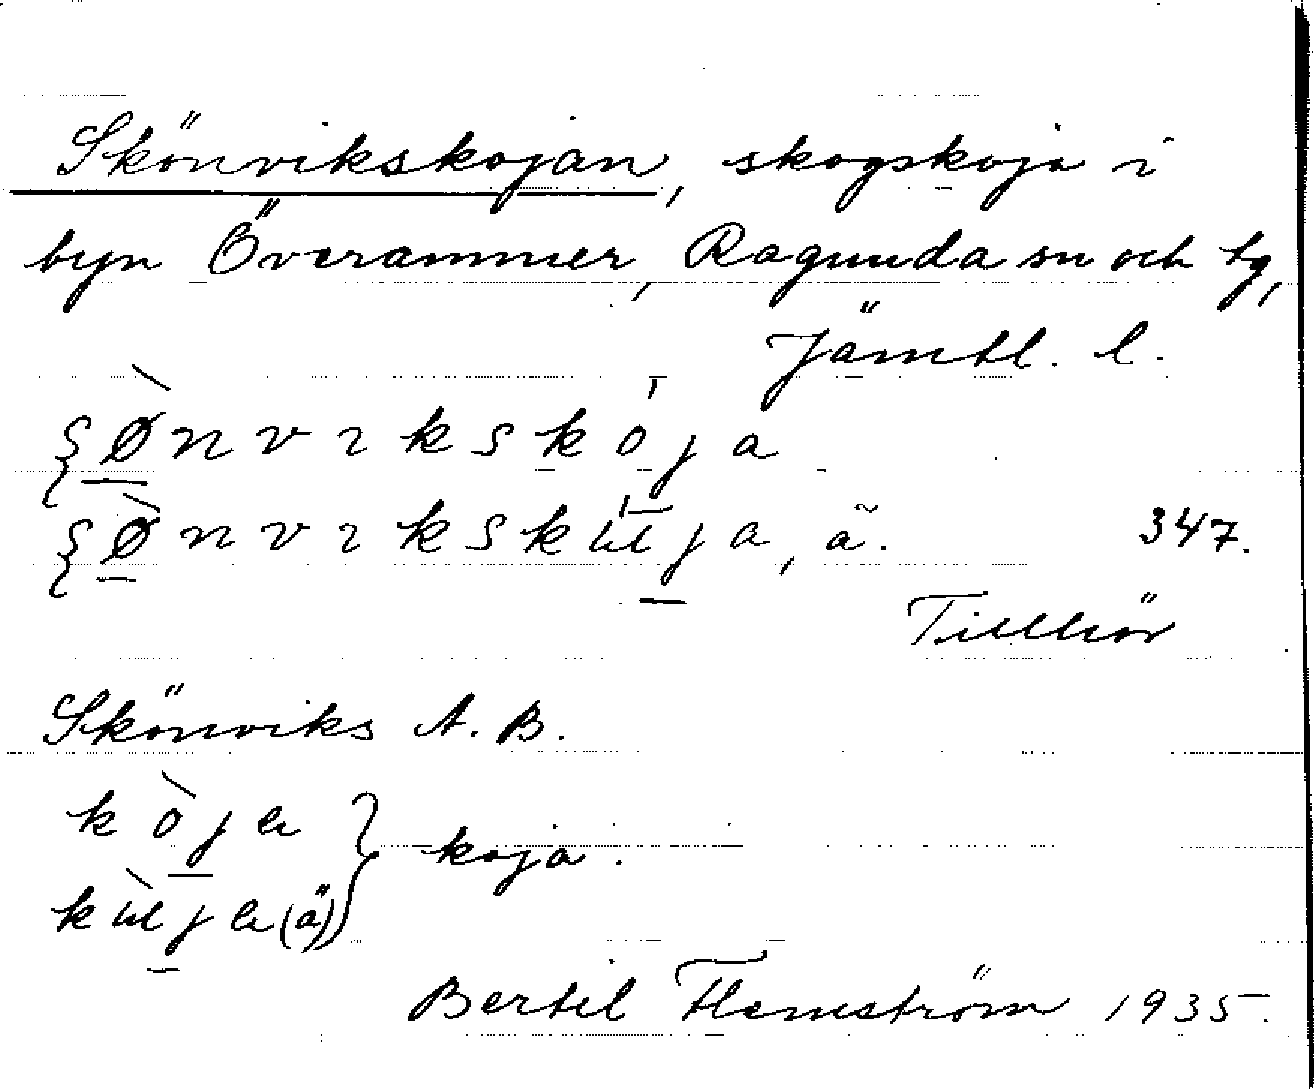 Skönvikskojan, skogskoja i
byn Överammer, Ragunda sn och tg,
Jämtl. l.
ʂø̀nvıkskója
ʂø̀nvıkskúɯja, ä. 347.
Tillhör
Skönviks A. B.
kòja } koja.
kùɯja (ä) }
Bertil Flemström 1935.